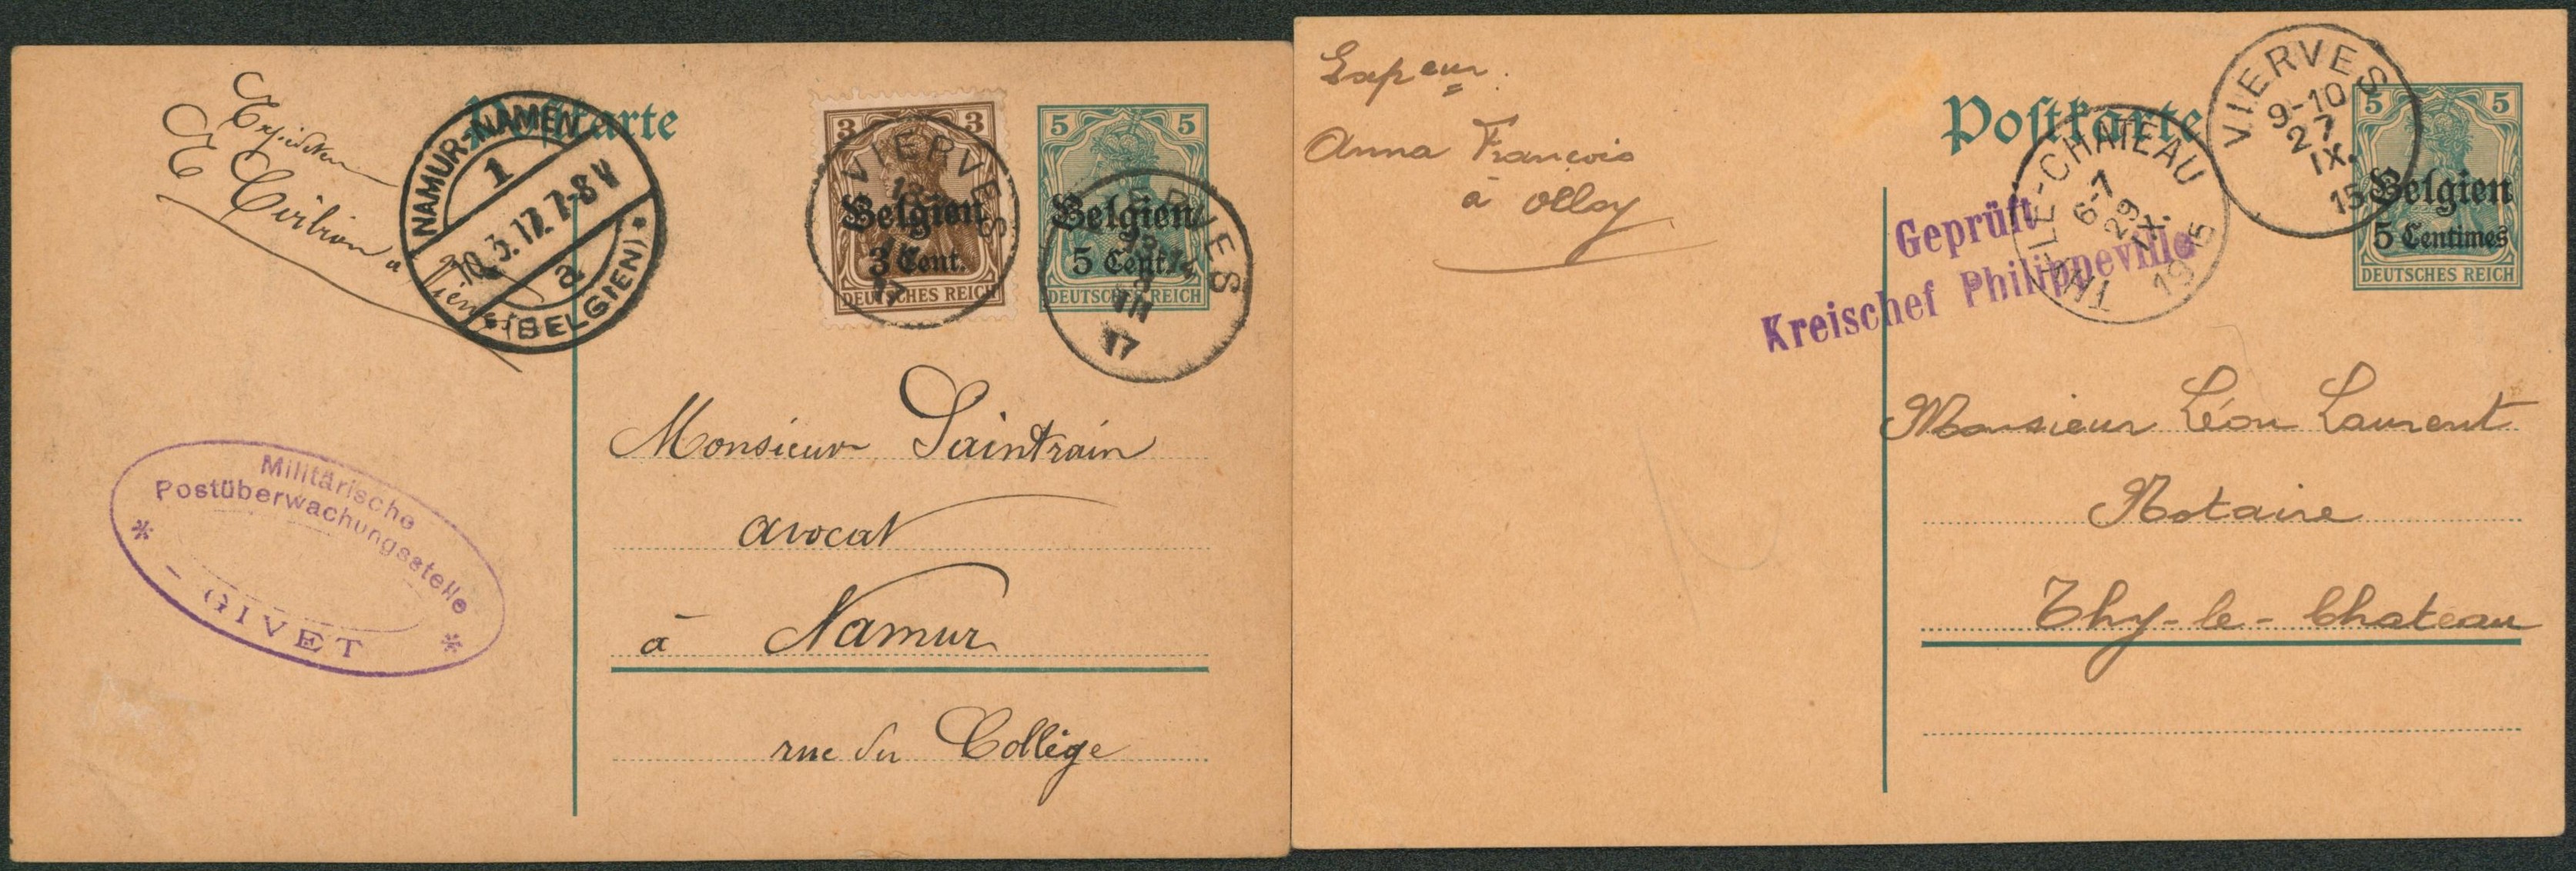 Expéditeur
E
à
Postkarte
NAMUR-NAMEN
1
10.3.17.7-8 V
a
(BELGIEN)
3 3
Belgien
3 Cent.
DEUTSCHES REICH
VIERVES
17
5 5
Belgien
5 Cent.
DEUTSCHES REICH
VIERVES
III
17
Militärische
Postüberwachungsstelle
GIVET
Monsieur Saintrain
avocat
à Namur
rue du Collège
Expeur.
Anna François
à Olloy
Postkarte
VIERVES
9-10
27
IX.
15
5 5
Belgien
5 Centimes
DEUTSCHES REICH
LE-CHATEAU
6-7
29
IX.
1915
Geprüft
Kreischef Philippeville
Monsieur Léon Laurent
Notaire
Thy-le-Chateau